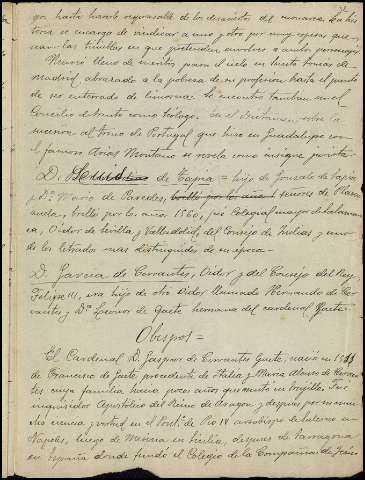 por hasta hacerle responsable de los desaciertos del monarca. La his
toria se encarga de vindicar a uno y otro por muy espesas que
sean las tinieblas en que pretenden envolver a ambos personajes
Murió lleno de meritos para el cielo en Santo Tomas de
Madrid abrazado a la pobreza de su profesion hasta el punto
de ser enterrado de limosna. Se encontro tambien en el
Concilio de Trento como teólogo. En el dictamen sobre la
sucesion al trono de Portugal que tuvo en Guadalupe con
el famoso Arias Montano se revela como insigne jurista.
D. Luis de Tapia = hijo de Gonzalo de Tapia
y Dª Maria de Paredes, brilló por los años señores de
brilló por los años 1560, fué Colegial mayor de Salaman
ca, Oidor de Sevilla y Valladolid, del Consejo de Indias y uno
de los letrados mas distinguidos de su época.
D. Garcia de Cervantes, Oidor y del Consejo del Rey
Felipe III, era hijo de otro Oidor llamado Hernando de Cer
vantes y Dª Leonor de Gaete hermana del cardenal Gaete.
Obispos =
El Cardenal D. Gaspar de Cervantes Gaete, nació en 1511
de Francisco de Gaete procedente de Italia y Maria Alonso de Cervan
tes cuya familia hacia pocos años que moró en Trujillo. Fué
inquisidor Apostolico del Reino de Aragon, y despues por su mu
cha ciencia y virtud en el Pontº de Pio IV arzobispo de Salerno en
Nápoles, luego de Messina en Sicilia, despues de Tarragona
en España donde fundó el Colegio de la Compañia de Jesus